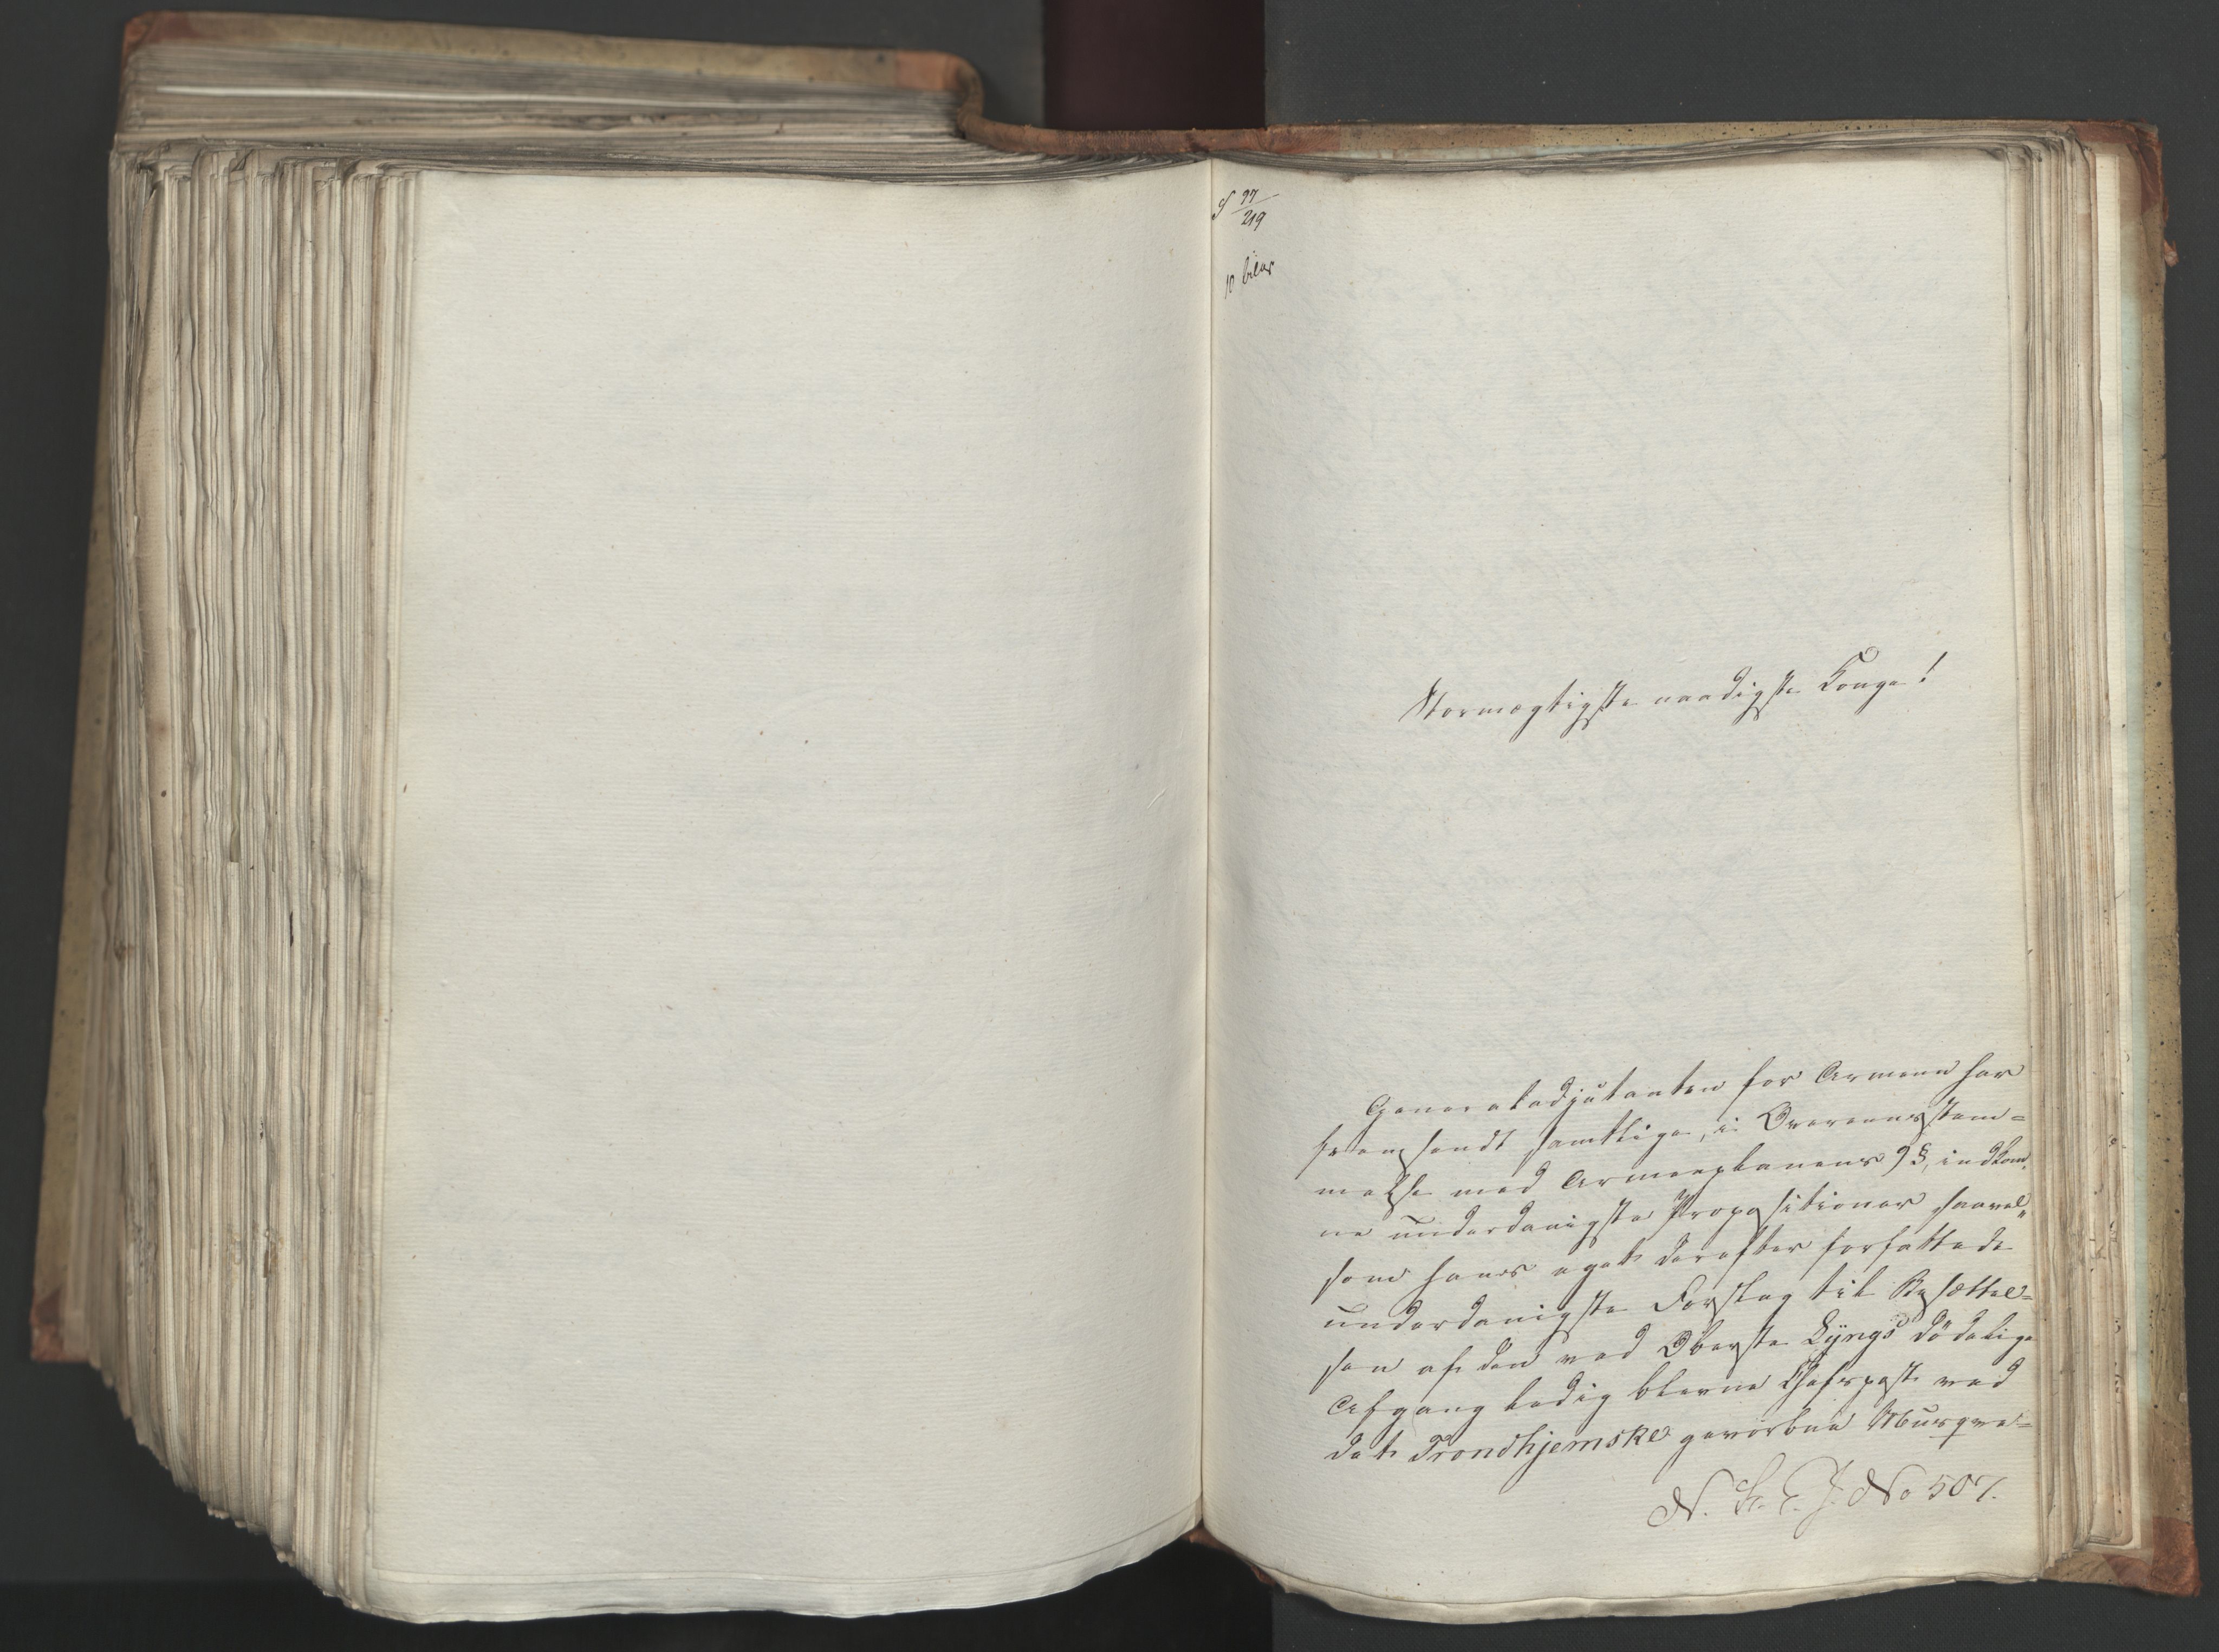 S 97/219
10 bilar
Stormægtigste naadigste Konge!
Generaladjutanten for Armeen har
fremsendt samtlige, i Overeensstem=
melse med Armeeplanens 9 §, indkom„
ne underdanigste Propositioner saavel„
som hans eget derefter forfattede
underdanigste Forslag til Besættel=
sen af den ved Oberste Lÿngs dödelige
Afgang ledig blevne Chefspost ved
det Trondhjemske gevorbne Musqve=
N. C. J. No 507.